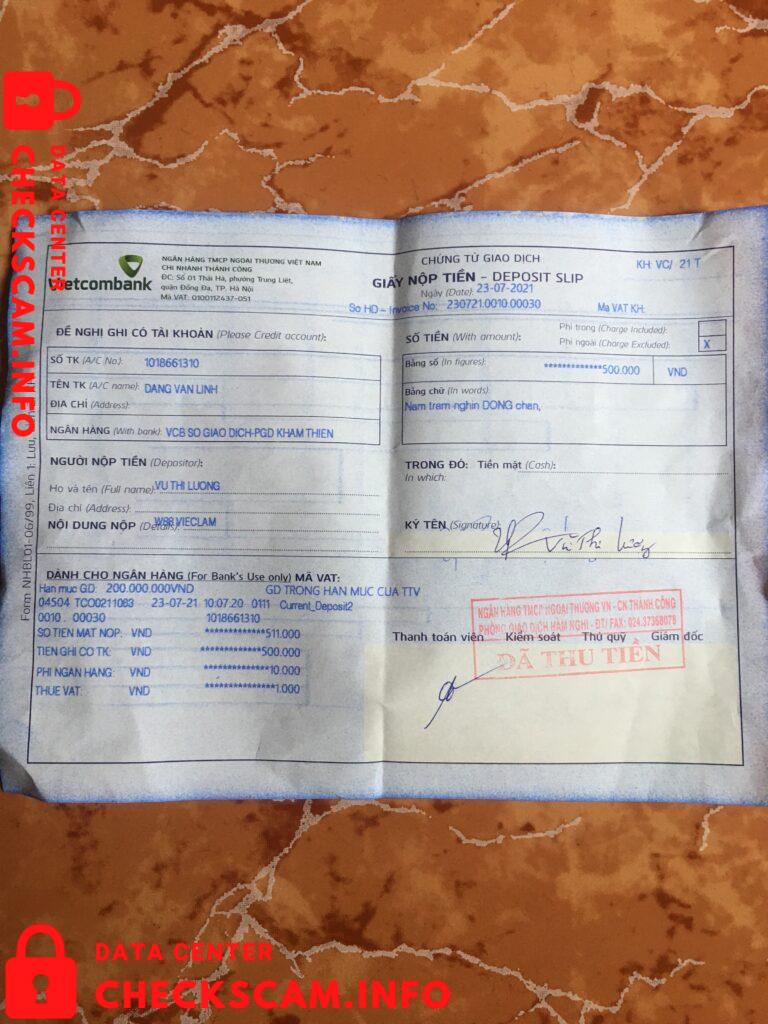 DATA CENTER
CHECKSCAM.INFO
Vietcombank
NGÂN HÀNG TMCP NGOẠI THƯƠNG VIỆT NAM
CHI NHÁNH THÀNH CÔNG
ĐC: Số 01 Thái Hà, phường Trung Liệt,
quận Đống Đa, TP. Hà Nội
Mã VAT: 0100112437-051
CHỨNG TỪ GIAO DỊCH
KH: VC/ 21 T
GIẤY NỘP TIỀN - DEPOSIT SLIP
Ngày (Date): 23-07-2021
So HD - Invoice No: 230721.0010.00030 Ma VAT KH:
ĐỀ NGHỊ GHI CÓ TÀI KHOẢN (Please Credit account):
SỐ TK (A/C No): 1018661310
TÊN TK (A/C name): DANG VAN LINH
ĐỊA CHỈ (Address):
NGÂN HÀNG (With bank): VCB SO GIAO DICH-PGD KHAM THIEN
SỐ TIỀN (With amount):
Phí trong (Charge Included):
Phí ngoài (Charge Excluded): X
Bằng số (In figures): *************500.000 VND
Bằng chữ (In words):
Nam tram nghin DONG chan,
NGƯỜI NỘP TIỀN (Depositor):
Họ và tên (Full name): VU THI LUONG
Địa chỉ (Address):
NỘI DUNG NỘP (Details): W88 VIECLAM
TRONG ĐÓ: Tiền mặt (Cash):
In which:
KÝ TÊN (Signature):
Vũ Thị Lương
DÀNH CHO NGÂN HÀNG (For Bank's Use only) MÃ VAT:
Han muc GD: 200.000.000VND GD TRONG HAN MUC CUA TTV
04504 TCO0211083 23-07-21 10:07:20 0111 Current_Deposit2
0010 . 00030 1018661310
SO TIEN MAT NOP: VND *************511.000
TIEN GHI CO TK: VND *************500.000
PHI NGAN HANG: VND **************10.000
THUE VAT: VND ***************1.000
NGÂN HÀNG TMCP NGOẠI THƯƠNG VN - CN THÀNH CÔNG
PHÒNG GIAO DỊCH HÀM NGHI - ĐT/ FAX: 024.37368078
ĐÃ THU TIỀN
Thanh toán viên Kiểm soát Thủ quỹ Giám đốc
Form NHBL01-06/99, Liên 1: Lưu,
DATA CENTER
CHECKSCAM.INFO